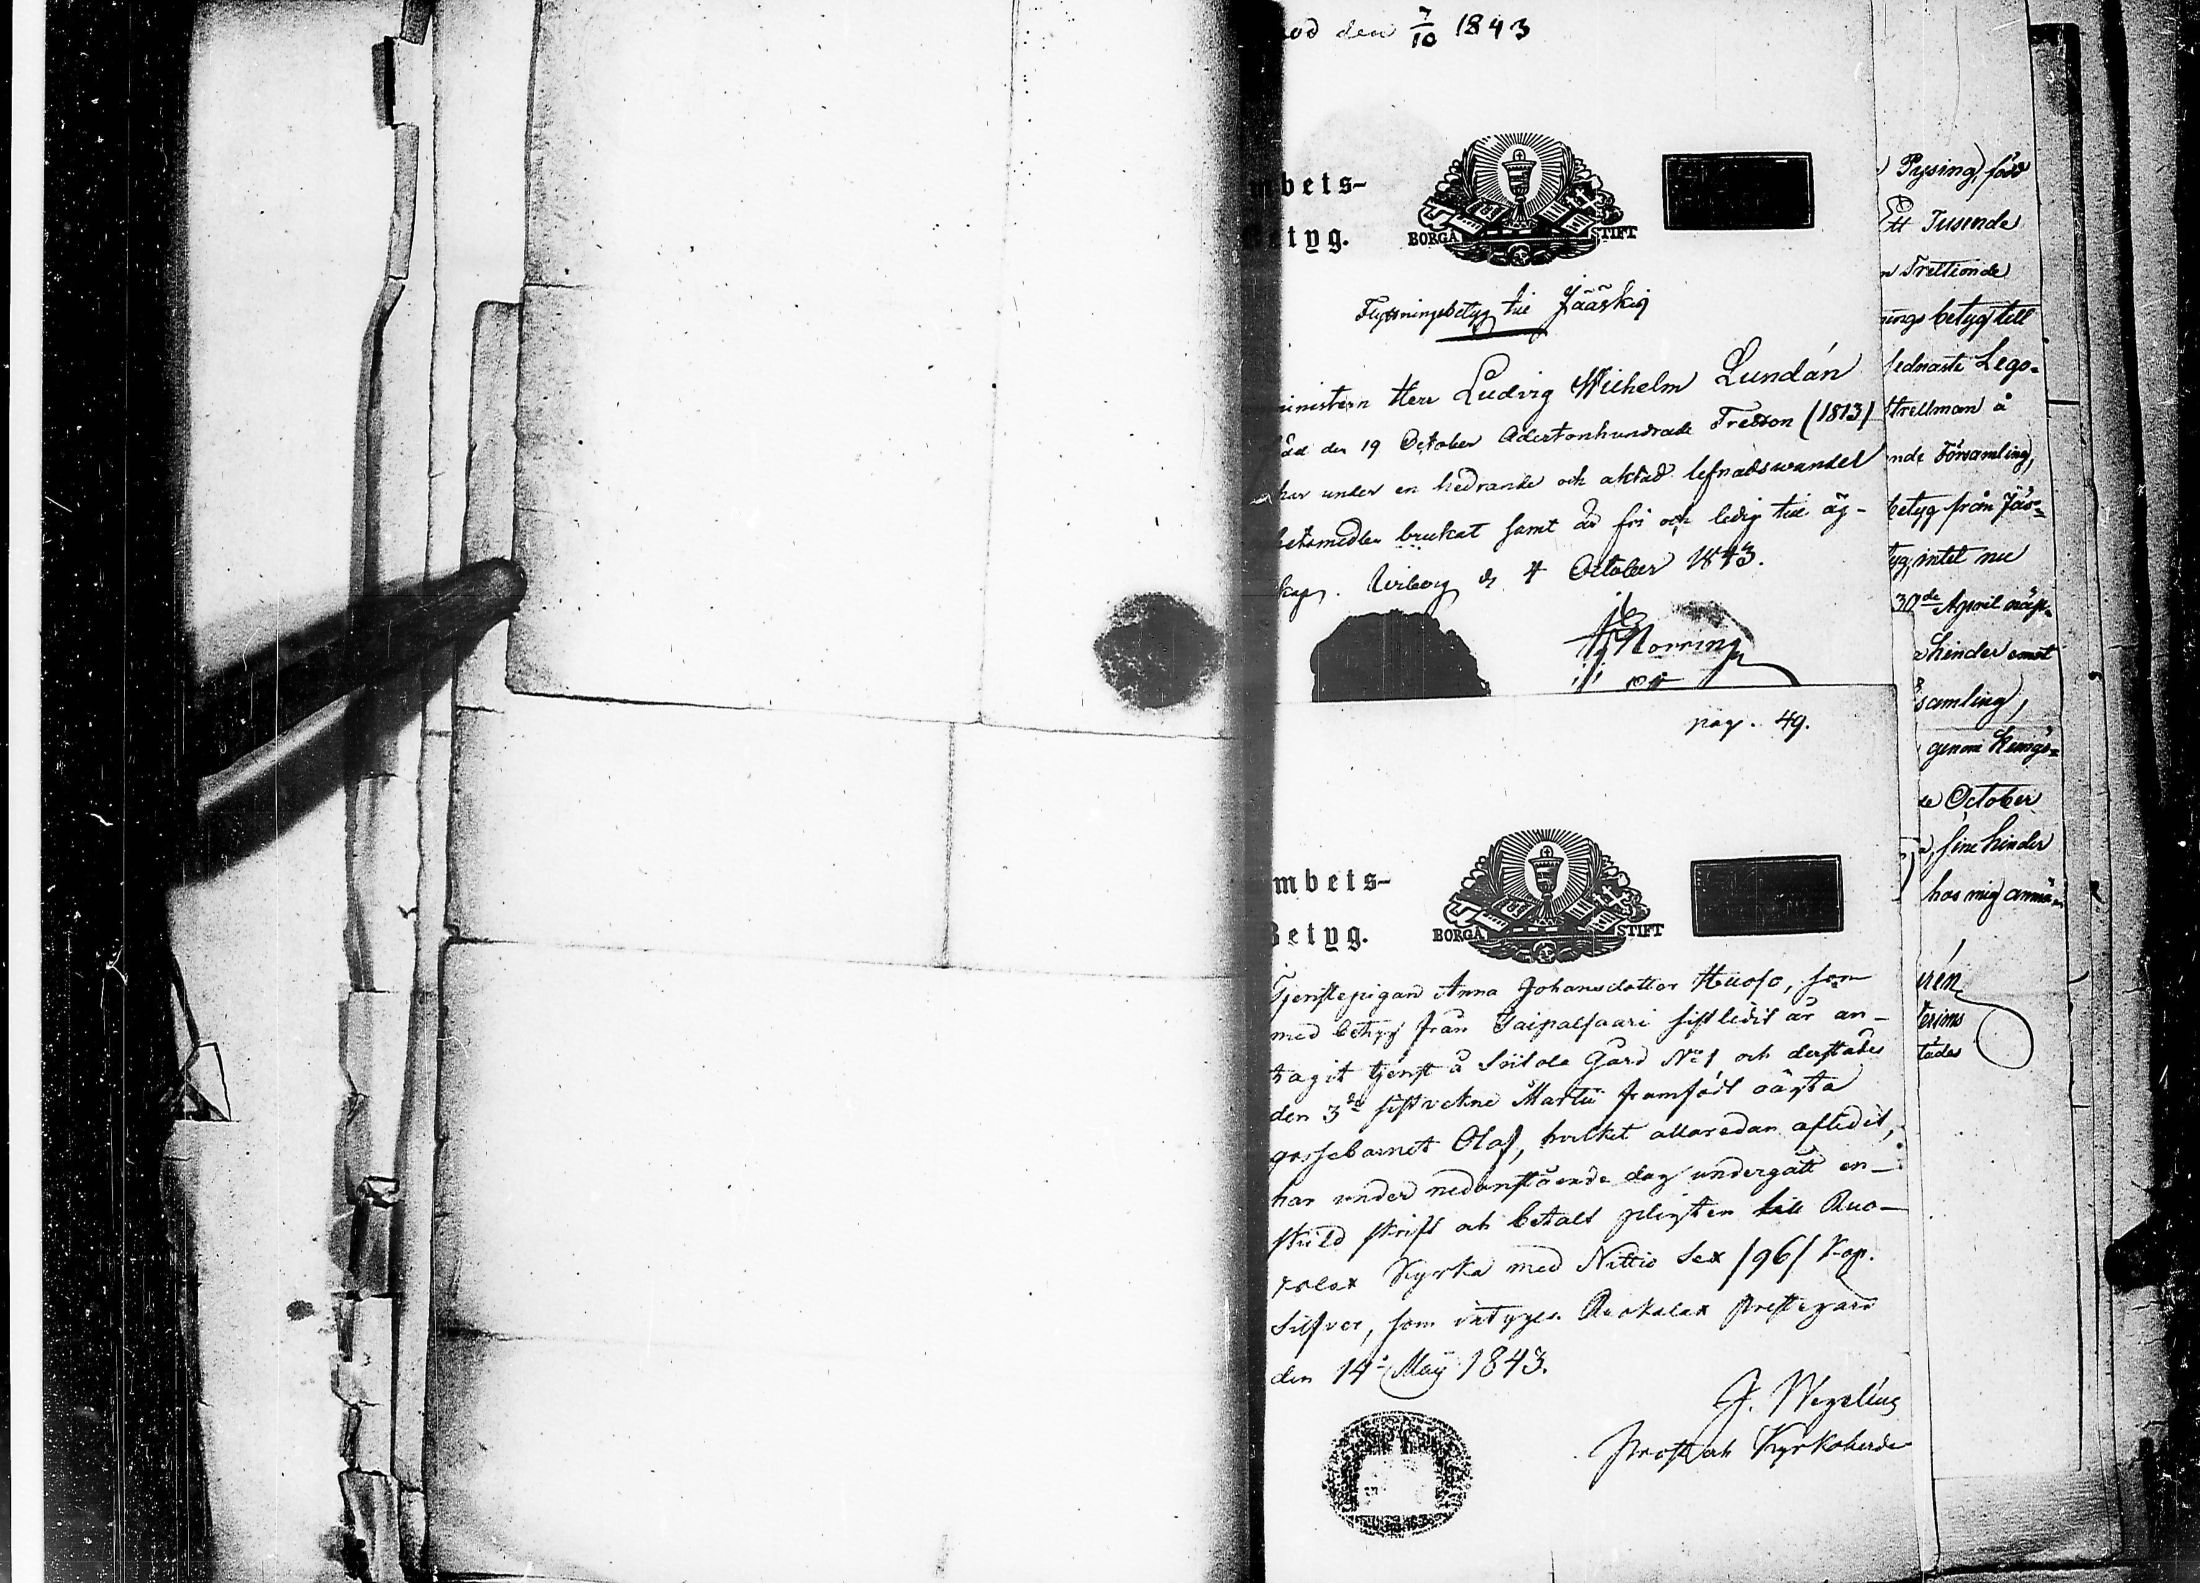 den 7/10 1843
mbets-
etyg.
BORGÅ STIFT
Flyttningsbetyg till Jääskis
ministern Herr Ludvig Wilhelm Lundán
den 19 October Adertonhundrade Tretton (1813)
har under en hedrande och aktad lefnadswandel
brukat samt är fri och ledig till äg-
skap. Wiborg d 4 October 1843.
pag. 49.
mbets-
Betyg.
BORGÅ STIFT
Tjenstepigan Anna Johansdotter Huoso, som
med betyg från Taipalsaari sistledit år an-
tagit tjenst å Siitola Gård No 1 och derstädes
den 3de sistvekne Martii framfödt oägta
gossebarnet Olaf, hvilket allaredan aflidit,
har under nedanstående dag undergått en-
skild skrift och betalt pligten till Ruo-
kolax Kyrka med Nittio Sex /96/ Kop.
Silfver, som intygas. Ruokolax Prestegård
den 14 Maij 1843.
J. Wegelius
Prost och Kyrkoherde
Pysing, född
Ett Tusende
Trettionde
nings betyg till
Lego-
Strellman å
nde Församling,
betyg från Jäs-
tyg, intet nu
30de April
hinder
samling,
genom
October
sine hinder
hos mig anmä-
rén
terims
tädes